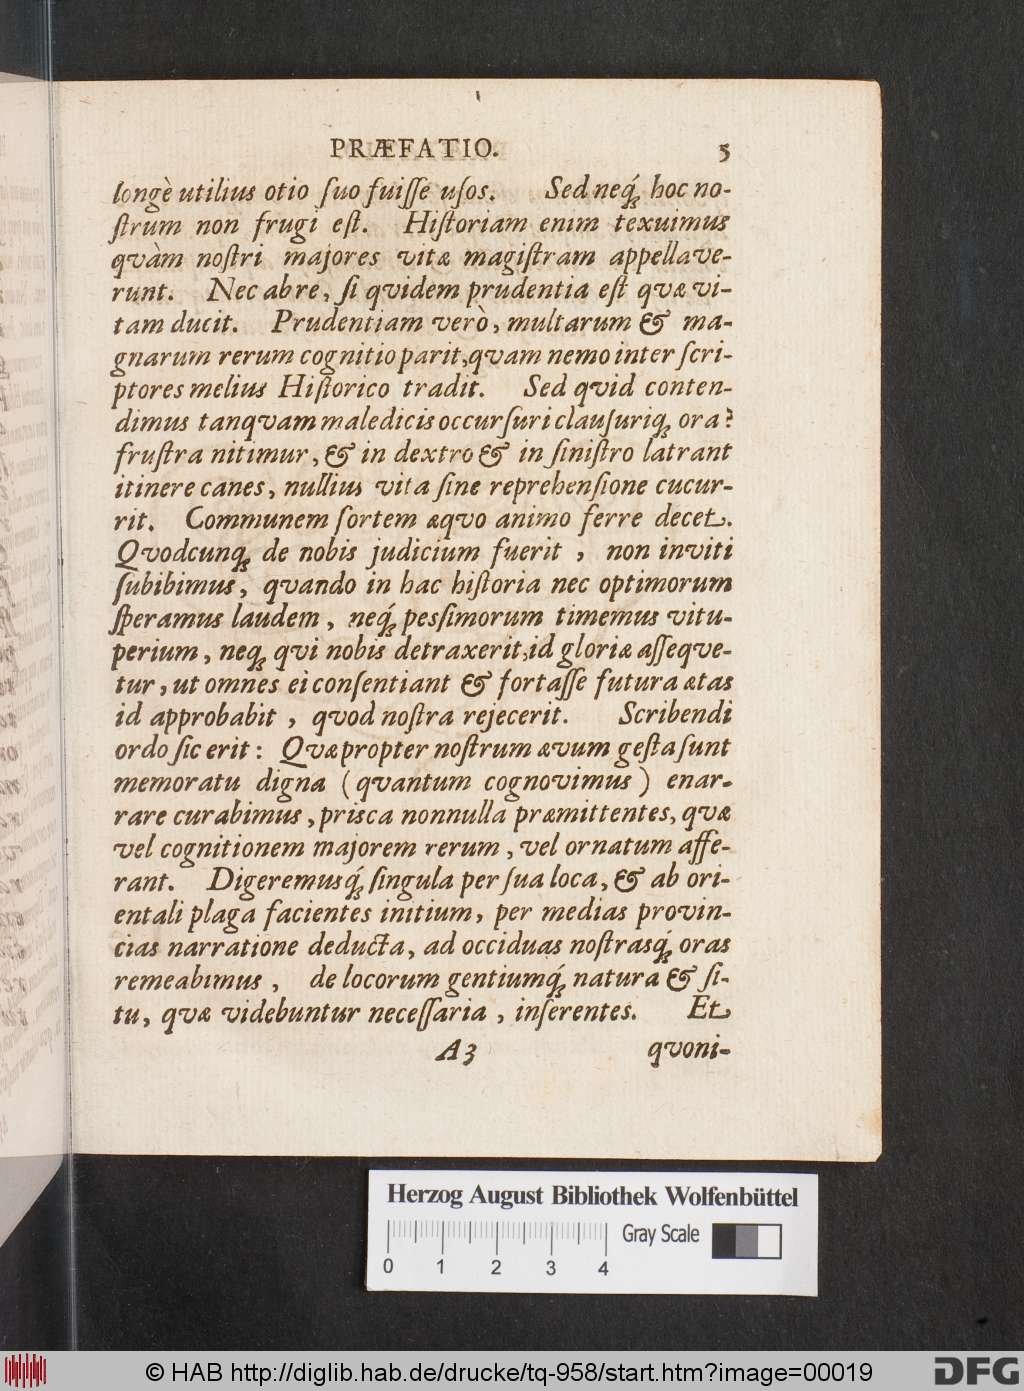 PRÆFATIO. 5
longè utilius otio ſuo fuiſſe uſos. Sed neq́; hoc no-
ſtrum non frugi eſt. Hiſtoriam enim texuimus
qvàm noſtri majores vitæ magiſtram appellave-
runt. Nec ab re, ſi qvidem prudentia eſt qvæ vi-
tam ducit. Prudentiam verò, multarum & ma-
gnarum rerum cognitio parit, qvam nemo inter ſcri-
ptores melius Hiſtorico tradit. Sed qvid conten-
dimus tanqvam maledicis occurſuri clauſuriq; ora?
fruſtra nitimur, & in dextro & in ſiniſtro latrant
itinere canes, nullius vita ſine reprehenſione cucur-
rit. Communem ſortem æqvo animo ferre decet.
Qvodcunq; de nobis judicium fuerit, non inviti
ſubibimus, qvando in hac hiſtoria nec optimorum
ſperamus laudem, neq́; pesſimorum timemus vitu-
perium, neq; qvi nobis detraxerit, id gloriæ aſſeqve-
tur, ut omnes ei conſentiant & fortaſſe futura ætas
id approbabit, qvod noſtra rejecerit. Scribendi
ordo ſic erit: Qvæpropter noſtrum ævum geſta ſunt
memoratu digna (qvantum cognovimus) enar-
rare curabimus, priſca nonnulla præmittentes, qvæ
vel cognitionem majorem rerum, vel ornatum affe-
rant. Digeremusq́; ſingula per ſua loca, & ab ori-
entali plaga facientes initium, per medias provin-
cias narratione deducta, ad occiduas noſtrasq́; oras
remeabimus, de locorum gentiumq́; natura & ſi-
tu, qvæ videbuntur neceſſaria, inſerentes. Et
A3 qvoni-
Herzog August Bibliothek Wolfenbüttel
Gray Scale
0 1 2 3 4
© HAB http://diglib.hab.de/drucke/tq-958/start.htm?image=00019
DFG